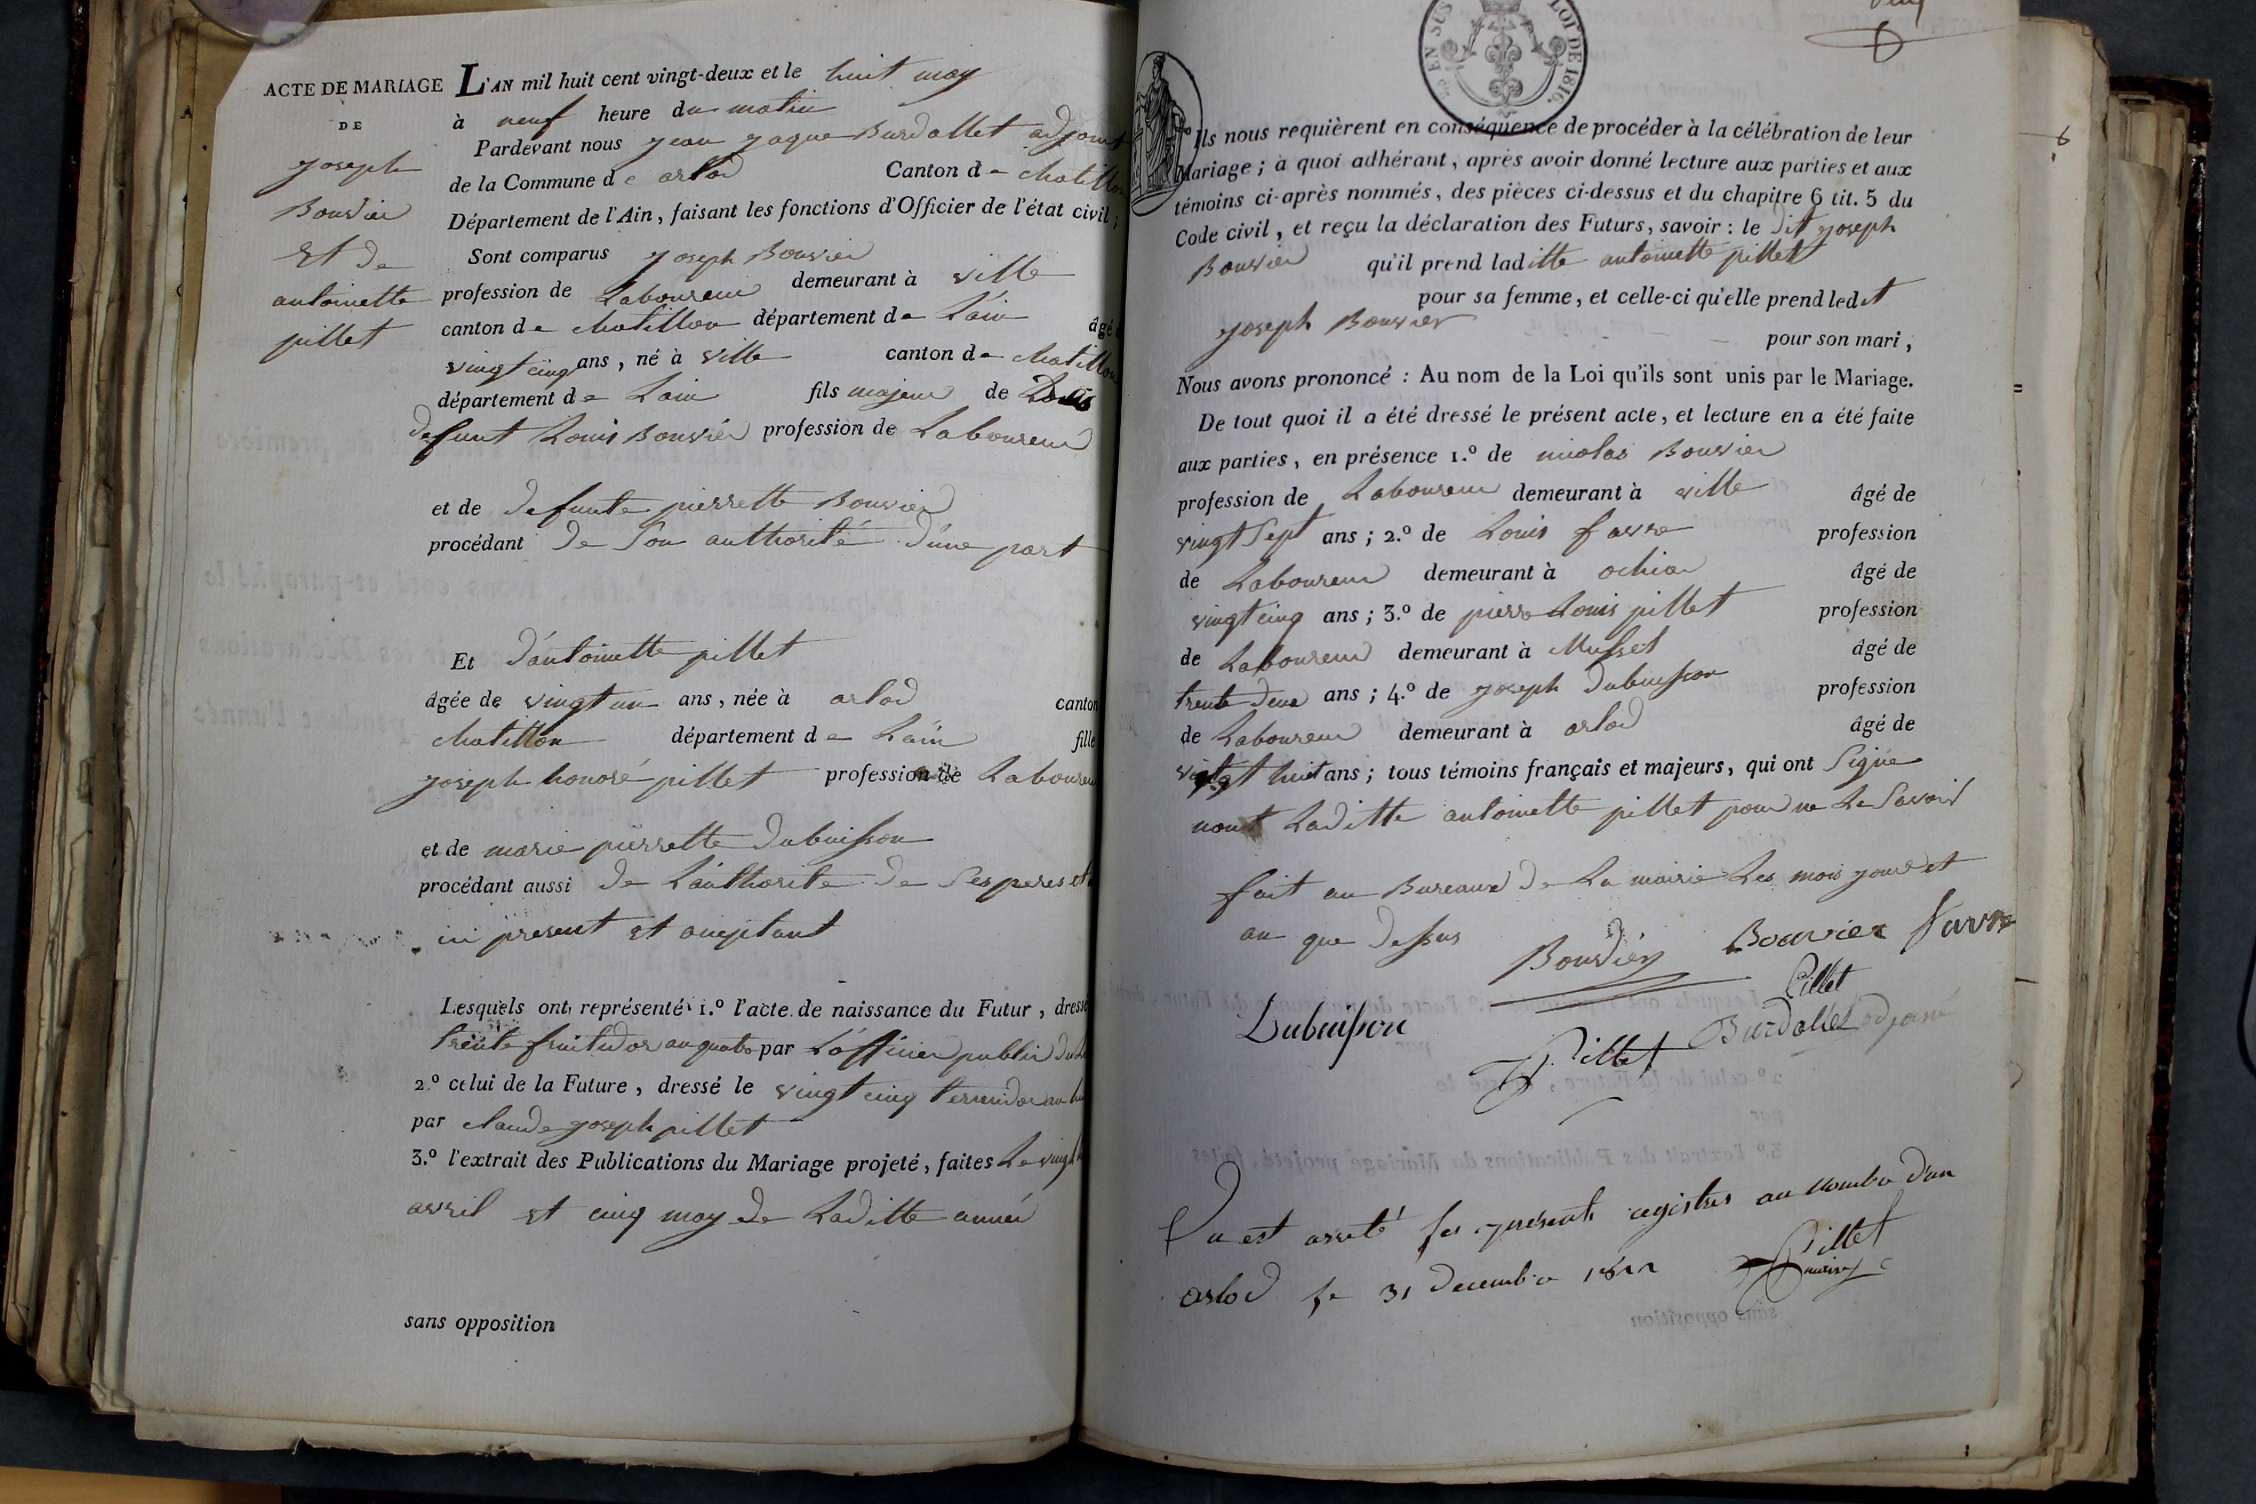 ACTE DE MARIAGE
DE
joseph
Bouvier
Et de
antoinette
pillet
L'AN mil huit cent vingt-deux et le huit may
à neuf heure du matin
Pardevant nous jean jaque Burdallet adjoint
de la Commune de arlod Canton de chatillon
Département de l'Ain, faisant les fonctions d'Officier de l'état civil ;
Sont comparus joseph Bouvier
profession de Laboureur demeurant à ville
canton de chatillon département de Lain âgé
vingt cinq ans, né à ville canton de chatillon
département de Lain fils majeur de
defunt Louis Bouvier profession de Laboureur
et de defunte pierrette Bouvier
procédant de Son authorité d'une part
Et d'antoinette pillet
âgée de vingt un ans, née à arlod canton
chatillon département de Lain fille
joseph honoré pillet profession de Laboureur
et de marie pierrette Dubuisson
procédant aussi de L'authorite de Ses peres et
ici present et aceptant
Lesquels ont représenté 1.º l'acte de naissance du Futur, dressé
trente fruitidor an quatre par L'officier public du
2.º celui de la Future, dressé le vingt cinq termidor an
par claude joseph pillet
3.º l'extrait des Publications du Mariage projeté, faites Le vingt
avril et cinq may de Laditte année
sans opposition
LOI DE 1816.
Ils nous requièrent en conséquence de procéder à la célébration de leur
Mariage ; à quoi adhérant, après avoir donné lecture aux parties et aux
témoins ci-après nommés, des pièces ci-dessus et du chapitre 6 tit. 5 du
Code civil, et reçu la déclaration des Futurs, savoir : le dit joseph
Bouvier qu'il prend laditte antoinette pillet
pour sa femme, et celle-ci qu'elle prend ledit
joseph Bouvier pour son mari ;
Nous avons prononcé : Au nom de la Loi qu'ils sont unis par le Mariage.
De tout quoi il a été dressé le présent acte, et lecture en a été faite
aux parties, en présence 1.º de nicolas Bouvier
profession de Laboureur demeurant à ville âgé de
vingt Sept ans ; 2.º de Louis favre profession
de Laboureur demeurant à ochiar âgé de
vingt cinq ans ; 3.º de pierre Louis pillet profession
de Laboureur demeurant à Mussel âgé de
trente deux ans ; 4.º de joseph Dubuisson profession
de Laboureur demeurant à arlod âgé de
vingt huit ans ; tous témoins français et majeurs, qui ont Signé
nont Laditte antoinette pillet pour ne Le Savoir
fait au Bureaux de La mairie Les mois jour et
an que dessus
Bouvier Bouvier Favre
Pillet
Dubuisson Pillet Burdallet adjoint
Vu est arreté les presents registres au nombre d'un
arlod le 31 decembre 1822 Pillet
maire